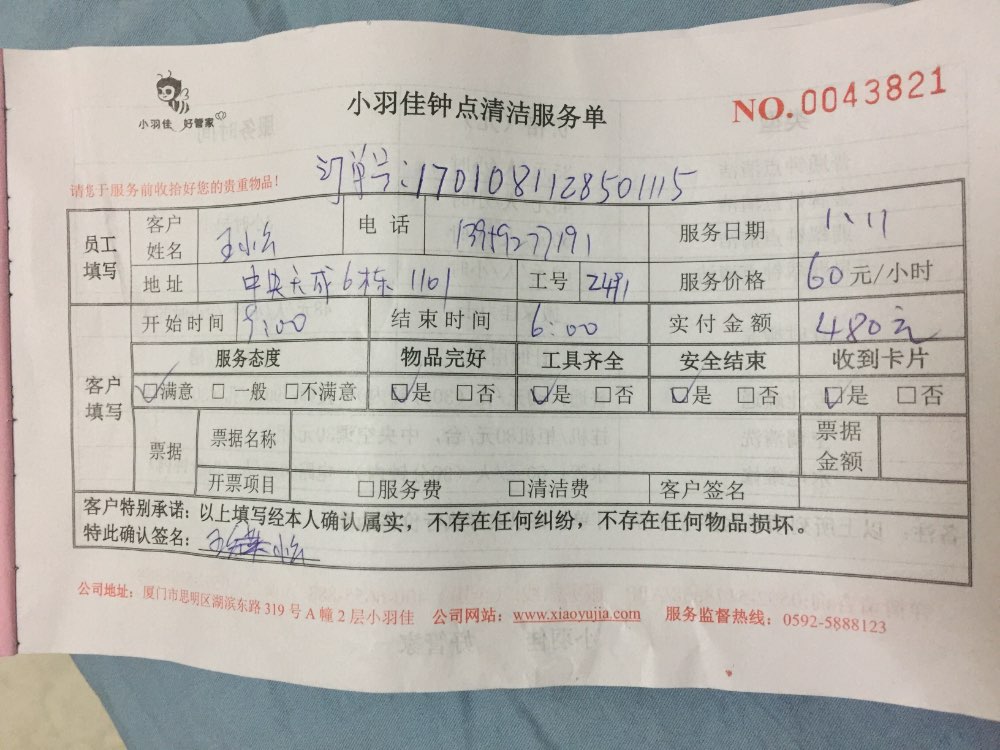 小羽佳 好管家
小羽佳钟点清洁服务单
NO.0043821
请您于服务前收拾好您的贵重物品！
订单号：1701081128501115
员工填写 客户姓名 电话 13949277191 服务日期 1、11
地址 中央天成6栋1101 工号 2491 服务价格 60元/小时
开始时间 9:00 结束时间 6:00 实付金额 480元
客户填写 服务态度 物品完好 工具齐全 安全结束 收到卡片
☑满意 □一般 □不满意 ☑是 □否 ☑是 □否 ☑是 □否 ☑是 □否
票据 票据名称 票据金额
开票项目 □服务费 □清洁费 客户签名
客户特别承诺：以上填写经本人确认属实，不存在任何纠纷，不存在任何物品损坏。
特此确认签名：
公司地址：厦门市思明区湖滨东路319号A幢2层小羽佳 公司网站：www.xiaoyujia.com 服务监督热线：0592-5888123